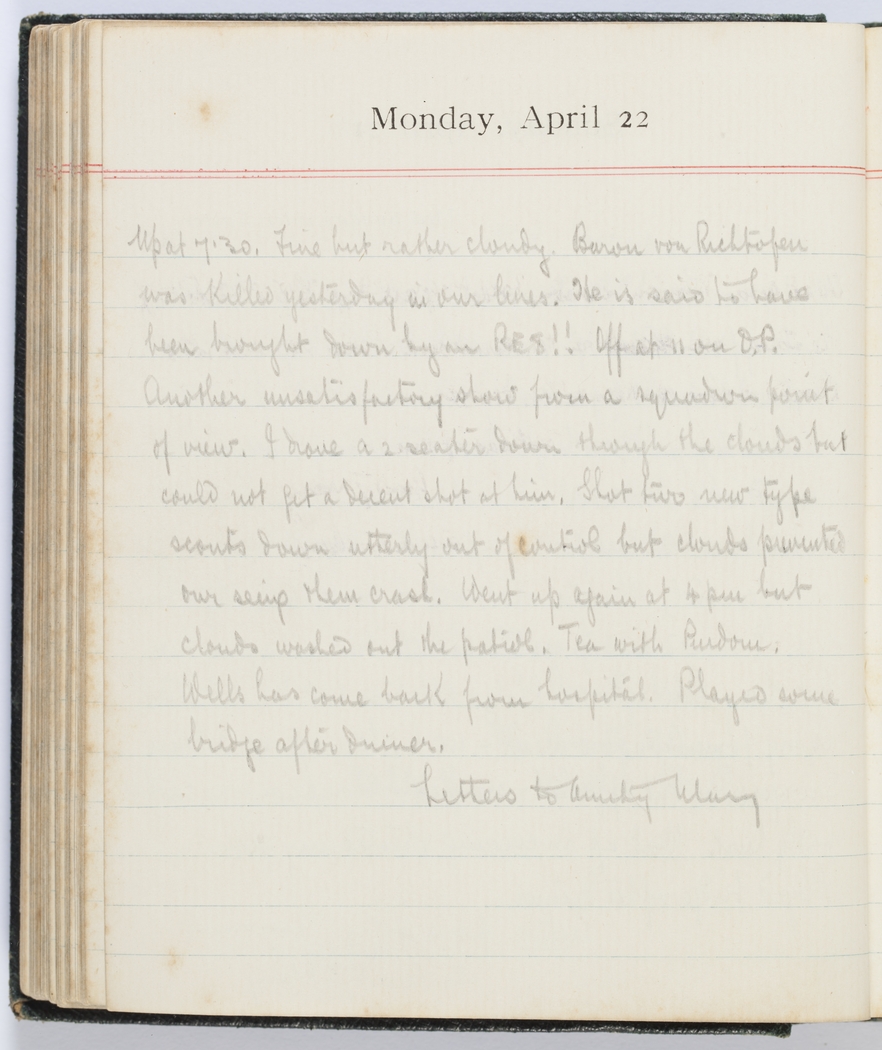 Monday, April 22
Up at 7.30. Fine but rather cloudy. Baron von Richtofen
was killed yesterday in our lines. He is said to have
been brought down by an RE8!! Off at 11 on O.P.
Another unsatisfactory show from a squadron point
of view. I drove a 2 seater down through the clouds but
could not get a decent shot at him. Shot two new type
scouts down utterly out of control but clouds prevented
our seeing them crash. Went up again at 4 pm but
clouds washed out the patrol. Tea with
Wells has come back from hospital. Played some
bridge after dinner.
Letters to Aunty Mary